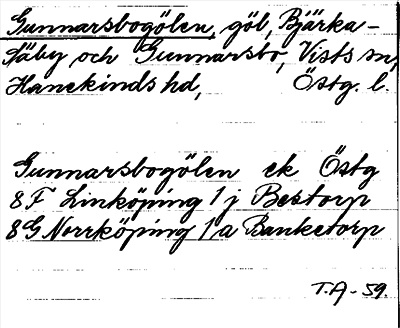 Gunnarsbogölen, göl, Bjärka-
Säby och Gunnarsbo, Vists sn,
Hanekinds hd, Östg. l.
Gunnarsbogölen ek Östg
8F Linköping 1 j Bestorp
8G Norrköping 1 a Banketorp
T.A - 59.